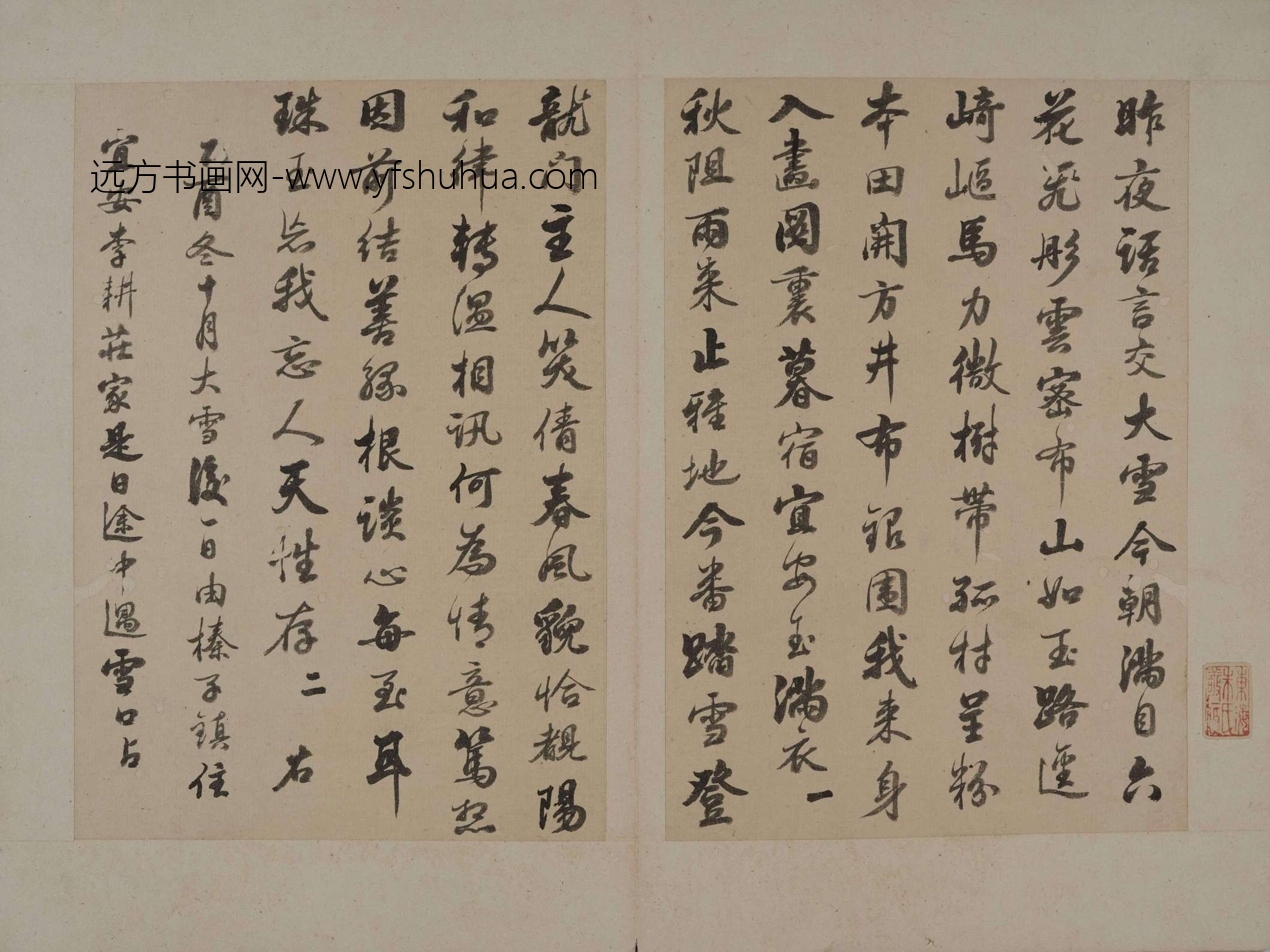 昨夜语言交大雪今朝满目六
花飛彤雲密布山如玉路逕
崎嶇馬力微樹帶孤村呈粉
本田開方井布銀圍我来身
入畫圖裏暮宿宜安玉满衣一
秋阻雨来止雅地今番踏雪登
龍門主人笑倩春風貌恰靚陽
和律轉温相訊何為情意篤
因前结善缘根谈心每至耳
珠玉忘我忘人天性存二 右
乙酉冬十月大雪後一日由榛子鎮住
宜安李耕莊家是日途中遇雪口占
远方书画网-www.yfshuhua.com